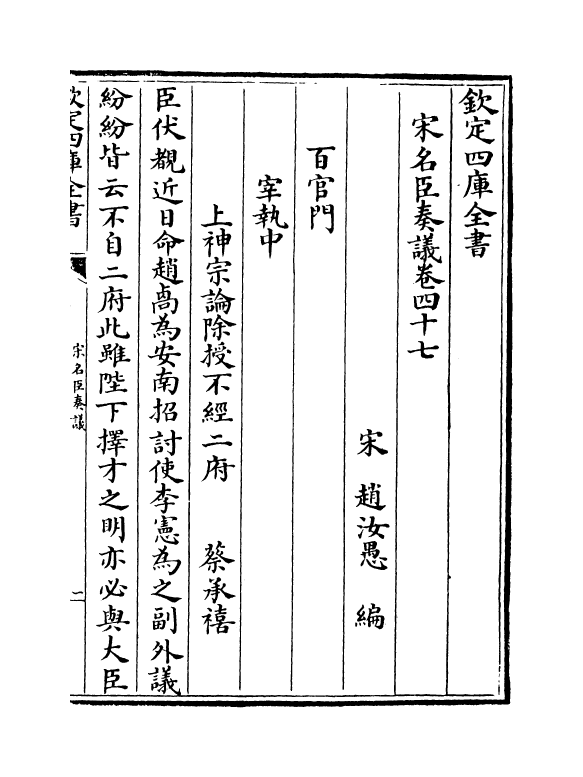 欽定四庫全書
宋名臣奏議卷四十七
宋 趙汝愚 編
百官門
宰執中
上神宗論除授不經二府 蔡承禧
臣伏覩近日命趙卨為安南招討使李憲為之副外議
紛紛皆云不自二府此雖陛下擇才之明亦必與大臣
欽定四庫全書
宋名臣奏議
二